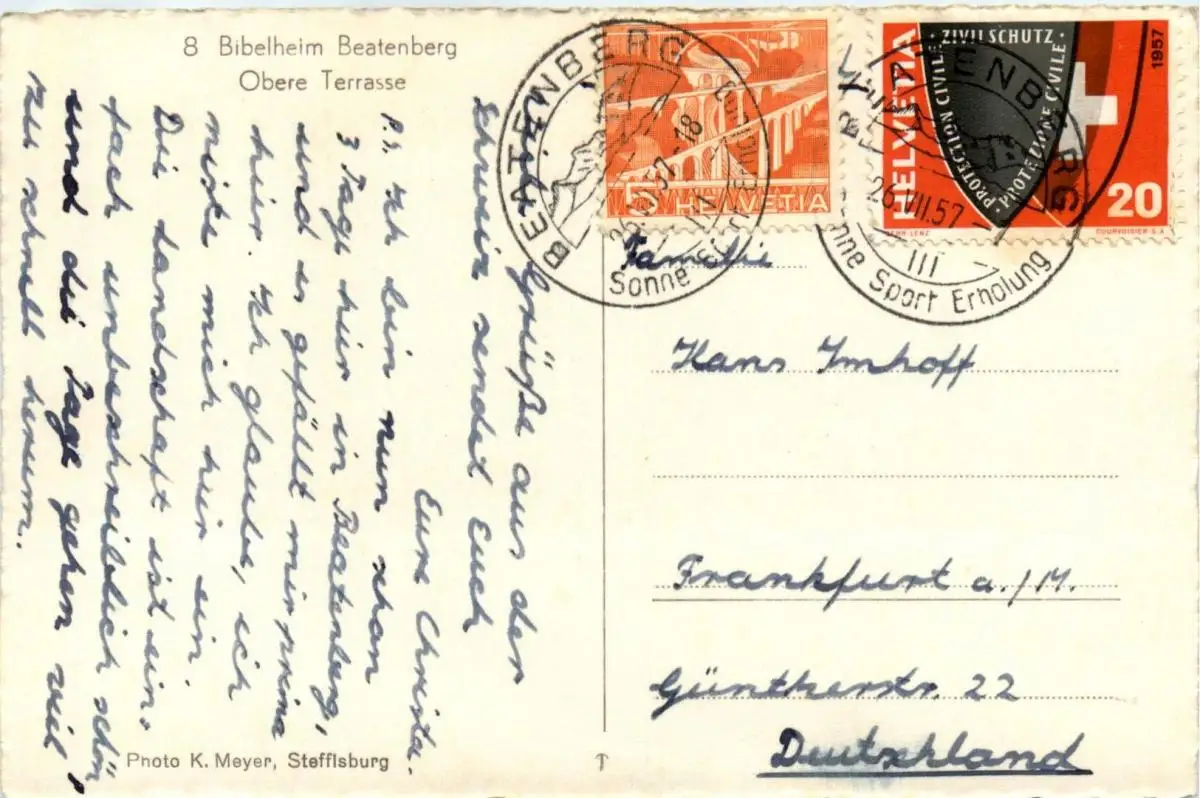 8 Bibelheim Beatenberg
Obere Terrasse
Viele Grüße aus der
Schweiz sendet Euch
Eure Christa.
P.S. Ich bin nun schon
3 Tage hier in Beatenberg,
und es gefällt mir prima
hier. Ich glaube, ich
miste mich hier ein.
Die Landschaft ist ein-
fach unbeschreiblich schön
und die Tage gehen viel
zu schnell herum.
Photo K. Meyer, Stefflsburg
BEATENBERG
26.VII.57-18
Sonne
5 HELVETIA
HELVETIA
ZIVILSCHUTZ
PROTECTION CIVILE
PROTEZIONE CIVILE
1957
20
COURVOISIER S.A.
BEATENBERG
26.VII.57
III
Sonne Sport Erholung
Familie
Hans Imhoff
Frankfurt a./M.
Güntherstr. 22
Deutschland